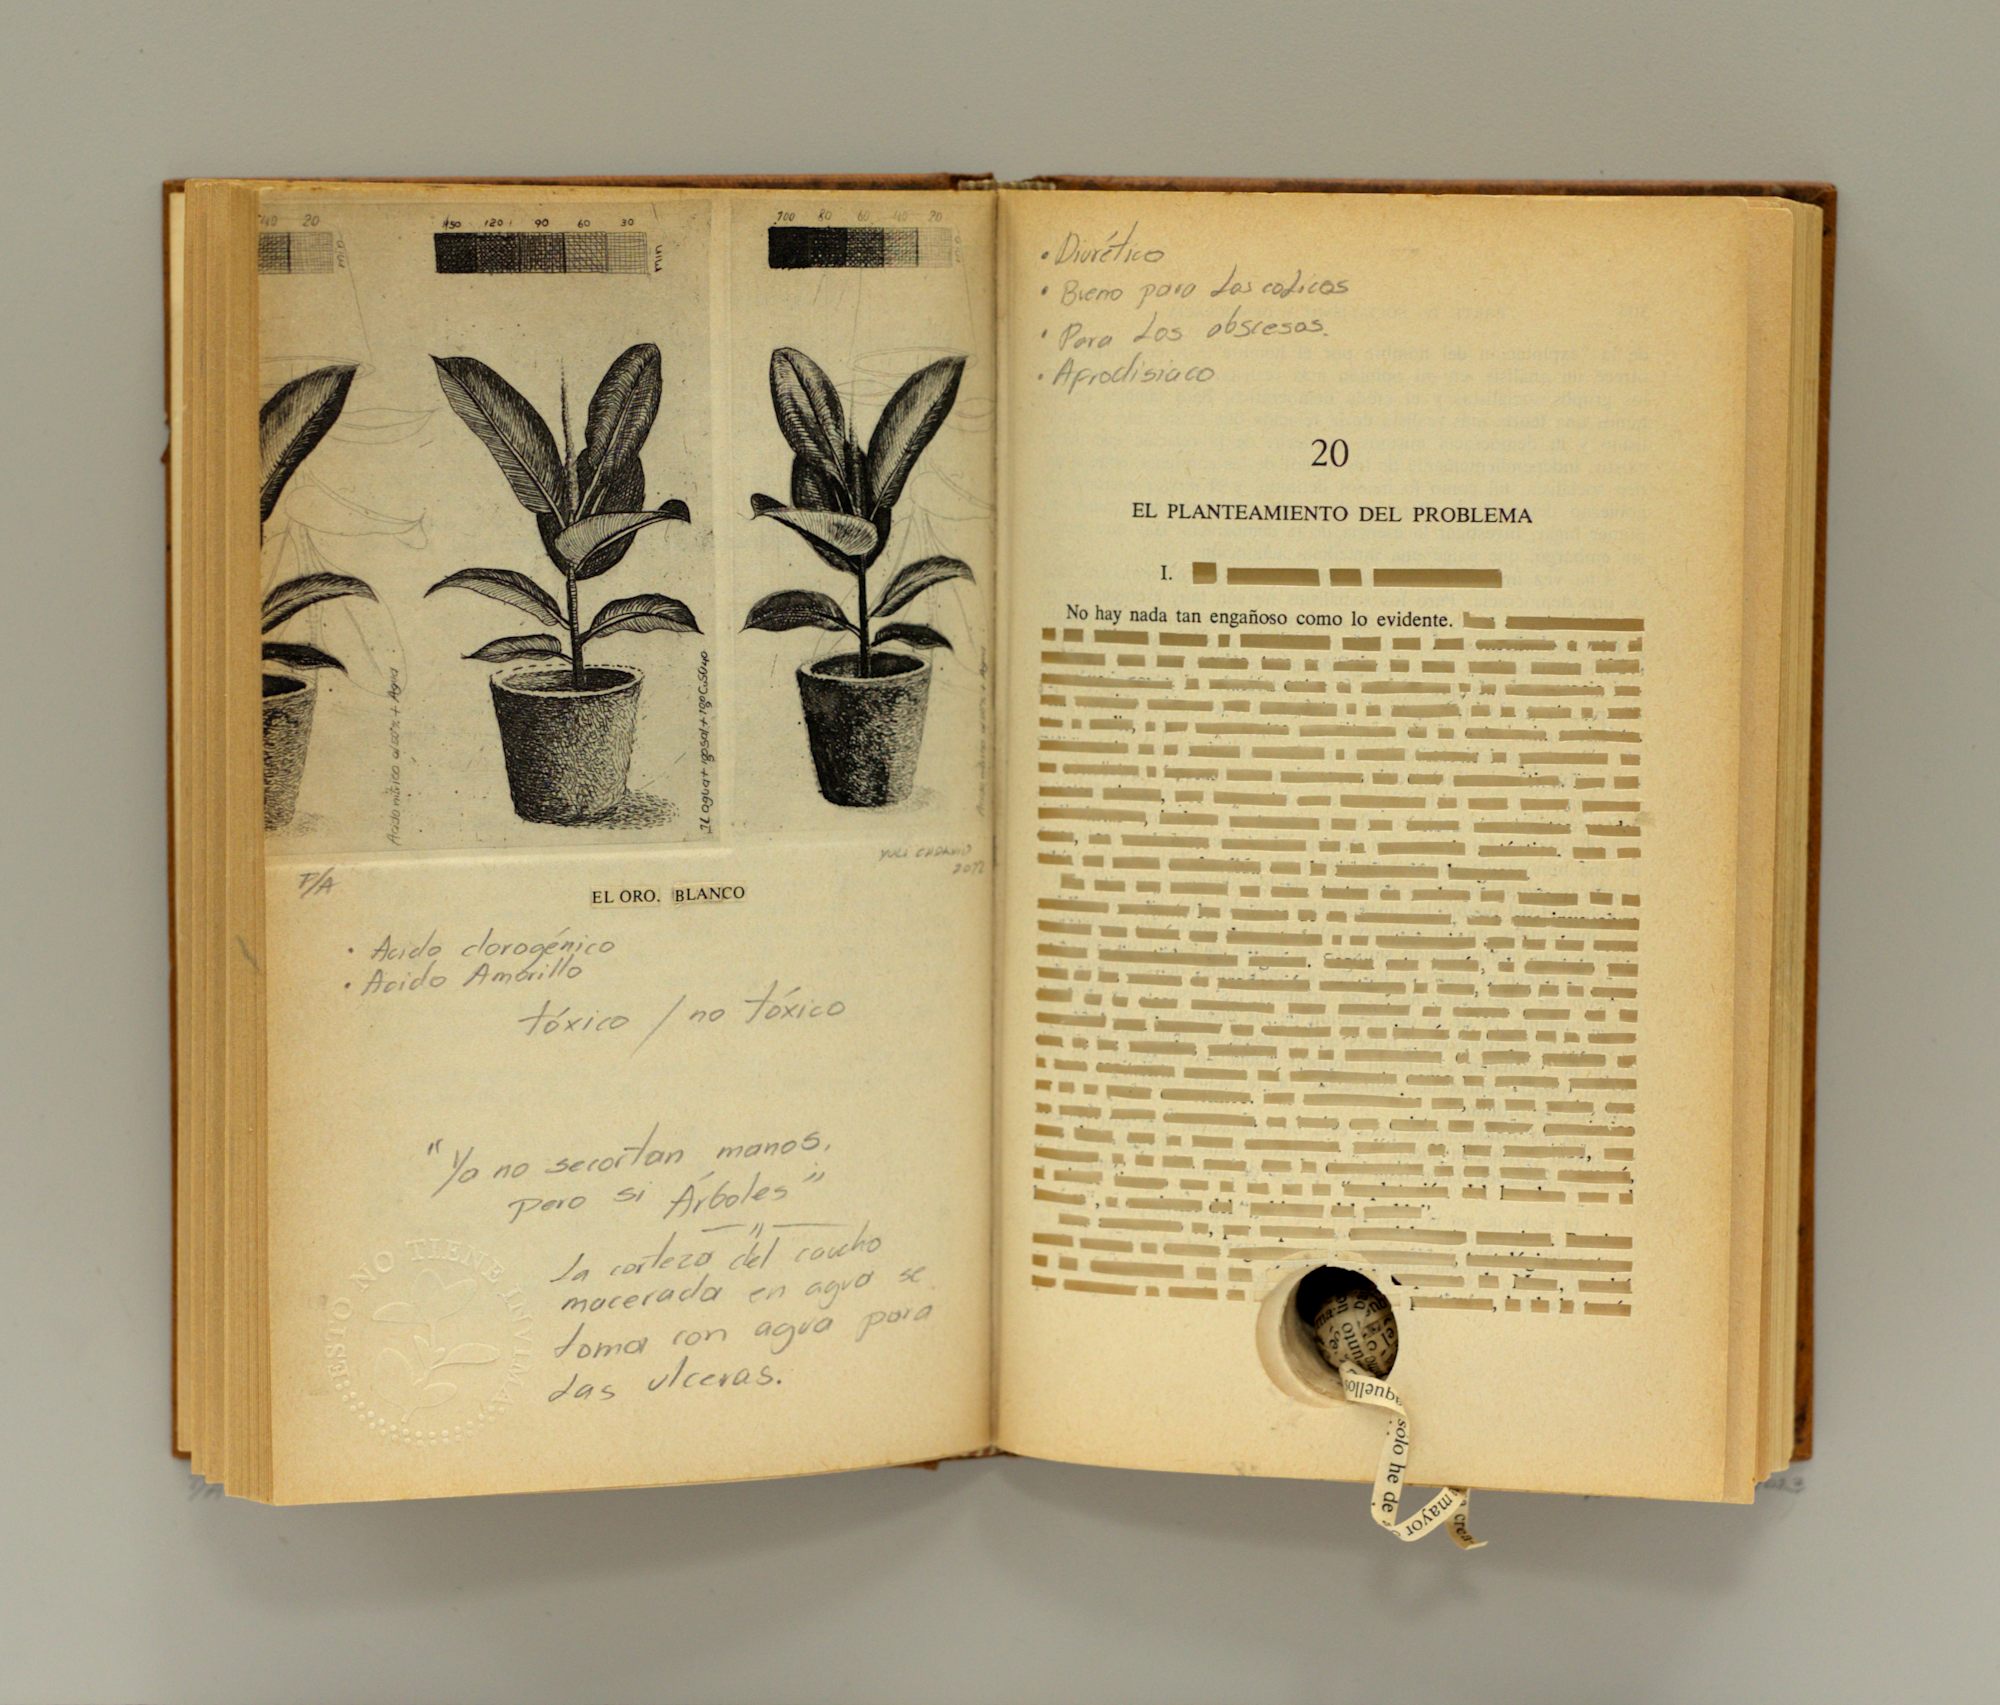 40 20
min
150 120 90 60 30
min
100 80 60 40 20
min
Acido nítrico al 50% + Agua
1L agua + 100 sal + 100 CuSO40
P/A
2012
EL ORO. BLANCO
• Acido clorogénico
• Acido Amarillo
tóxico / no tóxico
"Ya no se cortan manos,
pero si Árboles"
La corteza del caucho
macerada en agua se
toma con agua para
las ulceras.
ESTO NO TIENE INVIMA
• Diurético
• Bueno para los colicos
• Para los abscesos.
• Afrodisiaco
20
EL PLANTEAMIENTO DEL PROBLEMA
I.
No hay nada tan engañoso como lo evidente.
unto
aquellos
solo he de
mayor
crear